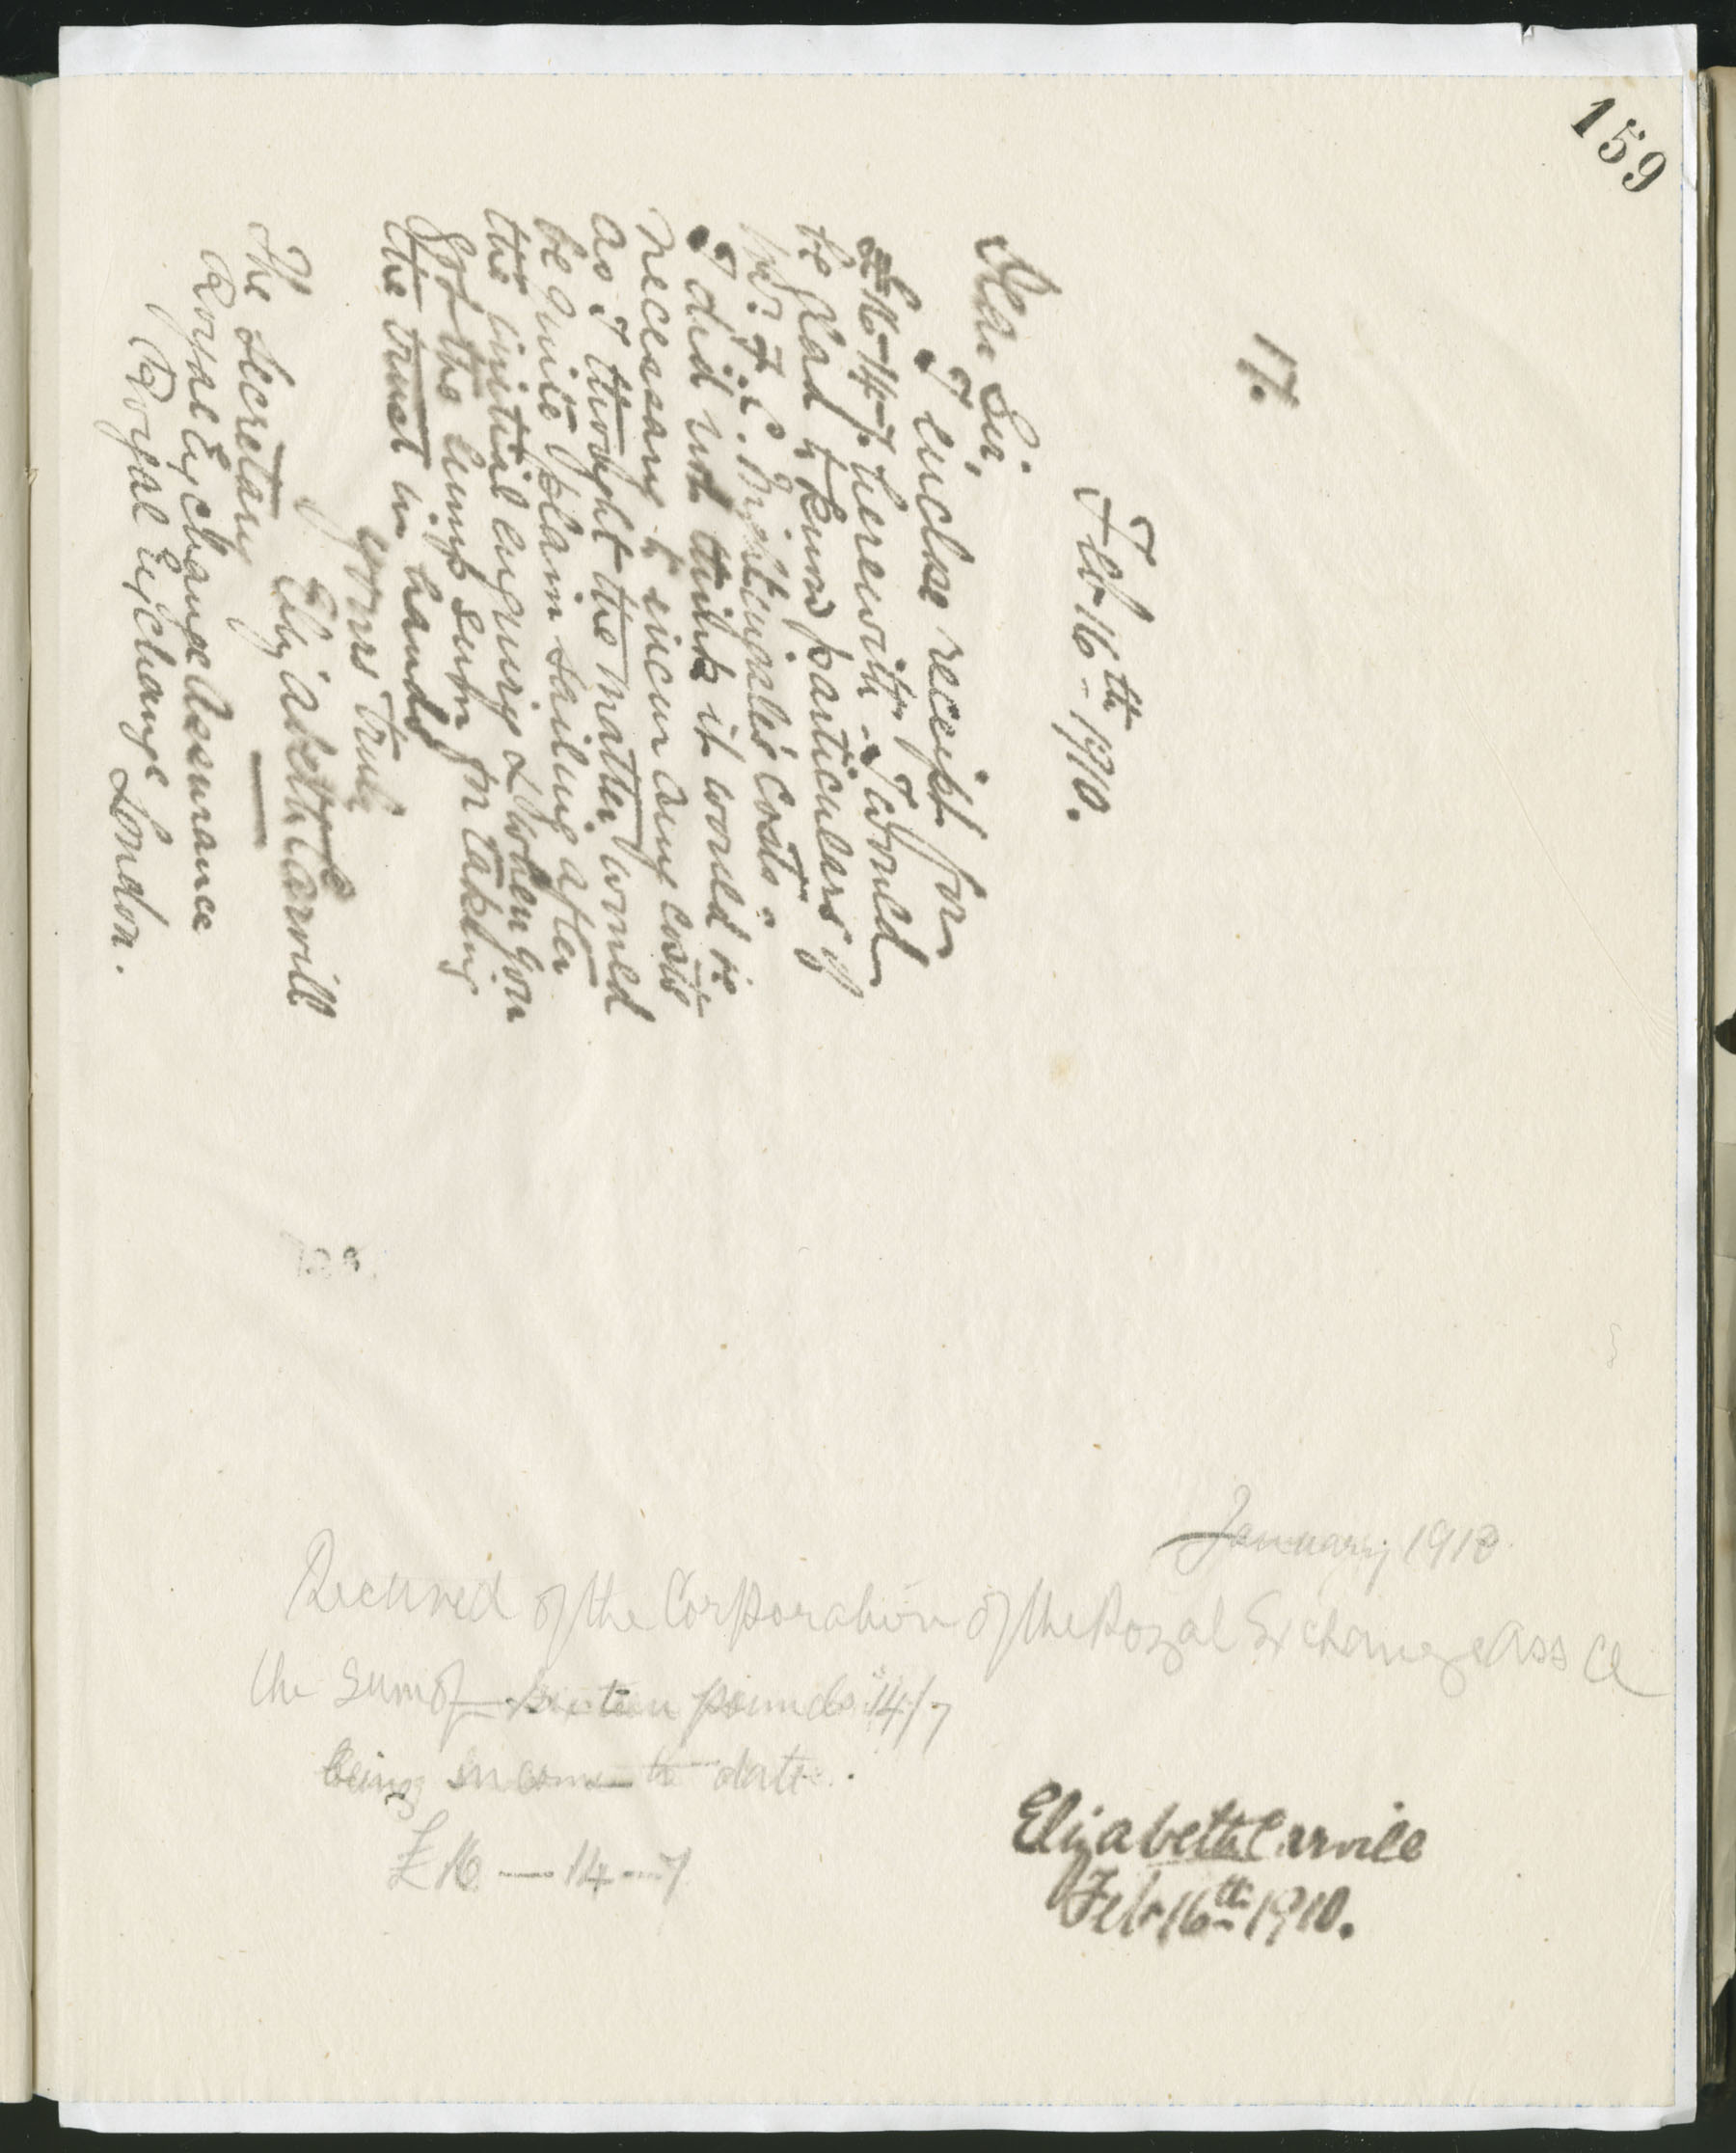 159
17.
Feb 16th - 1910.
Dear Sir,
I enclose receipt for
£16-14-7. herewith. I would
be glad to know particulars of
Mr. F. J. Nightingale's costs.
I did not think it would be
necessary to incur any costs
as I thought the matter would
be quite plain sailing after
the initial enquiry & when you
got the lump sum for taking
the trust in hand.
Yours truly
Elizabeth Carvill
The Secretary
Royal Exchange Assurance
Royal Exchange London.
January 1910
Received of the Corporation of the Royal Exchange Ass Ce
the sum of sixteen pounds 14/7
being income to date.
£16 — 14 — 7
Elizabeth Carvill
Feb 16th 1910.